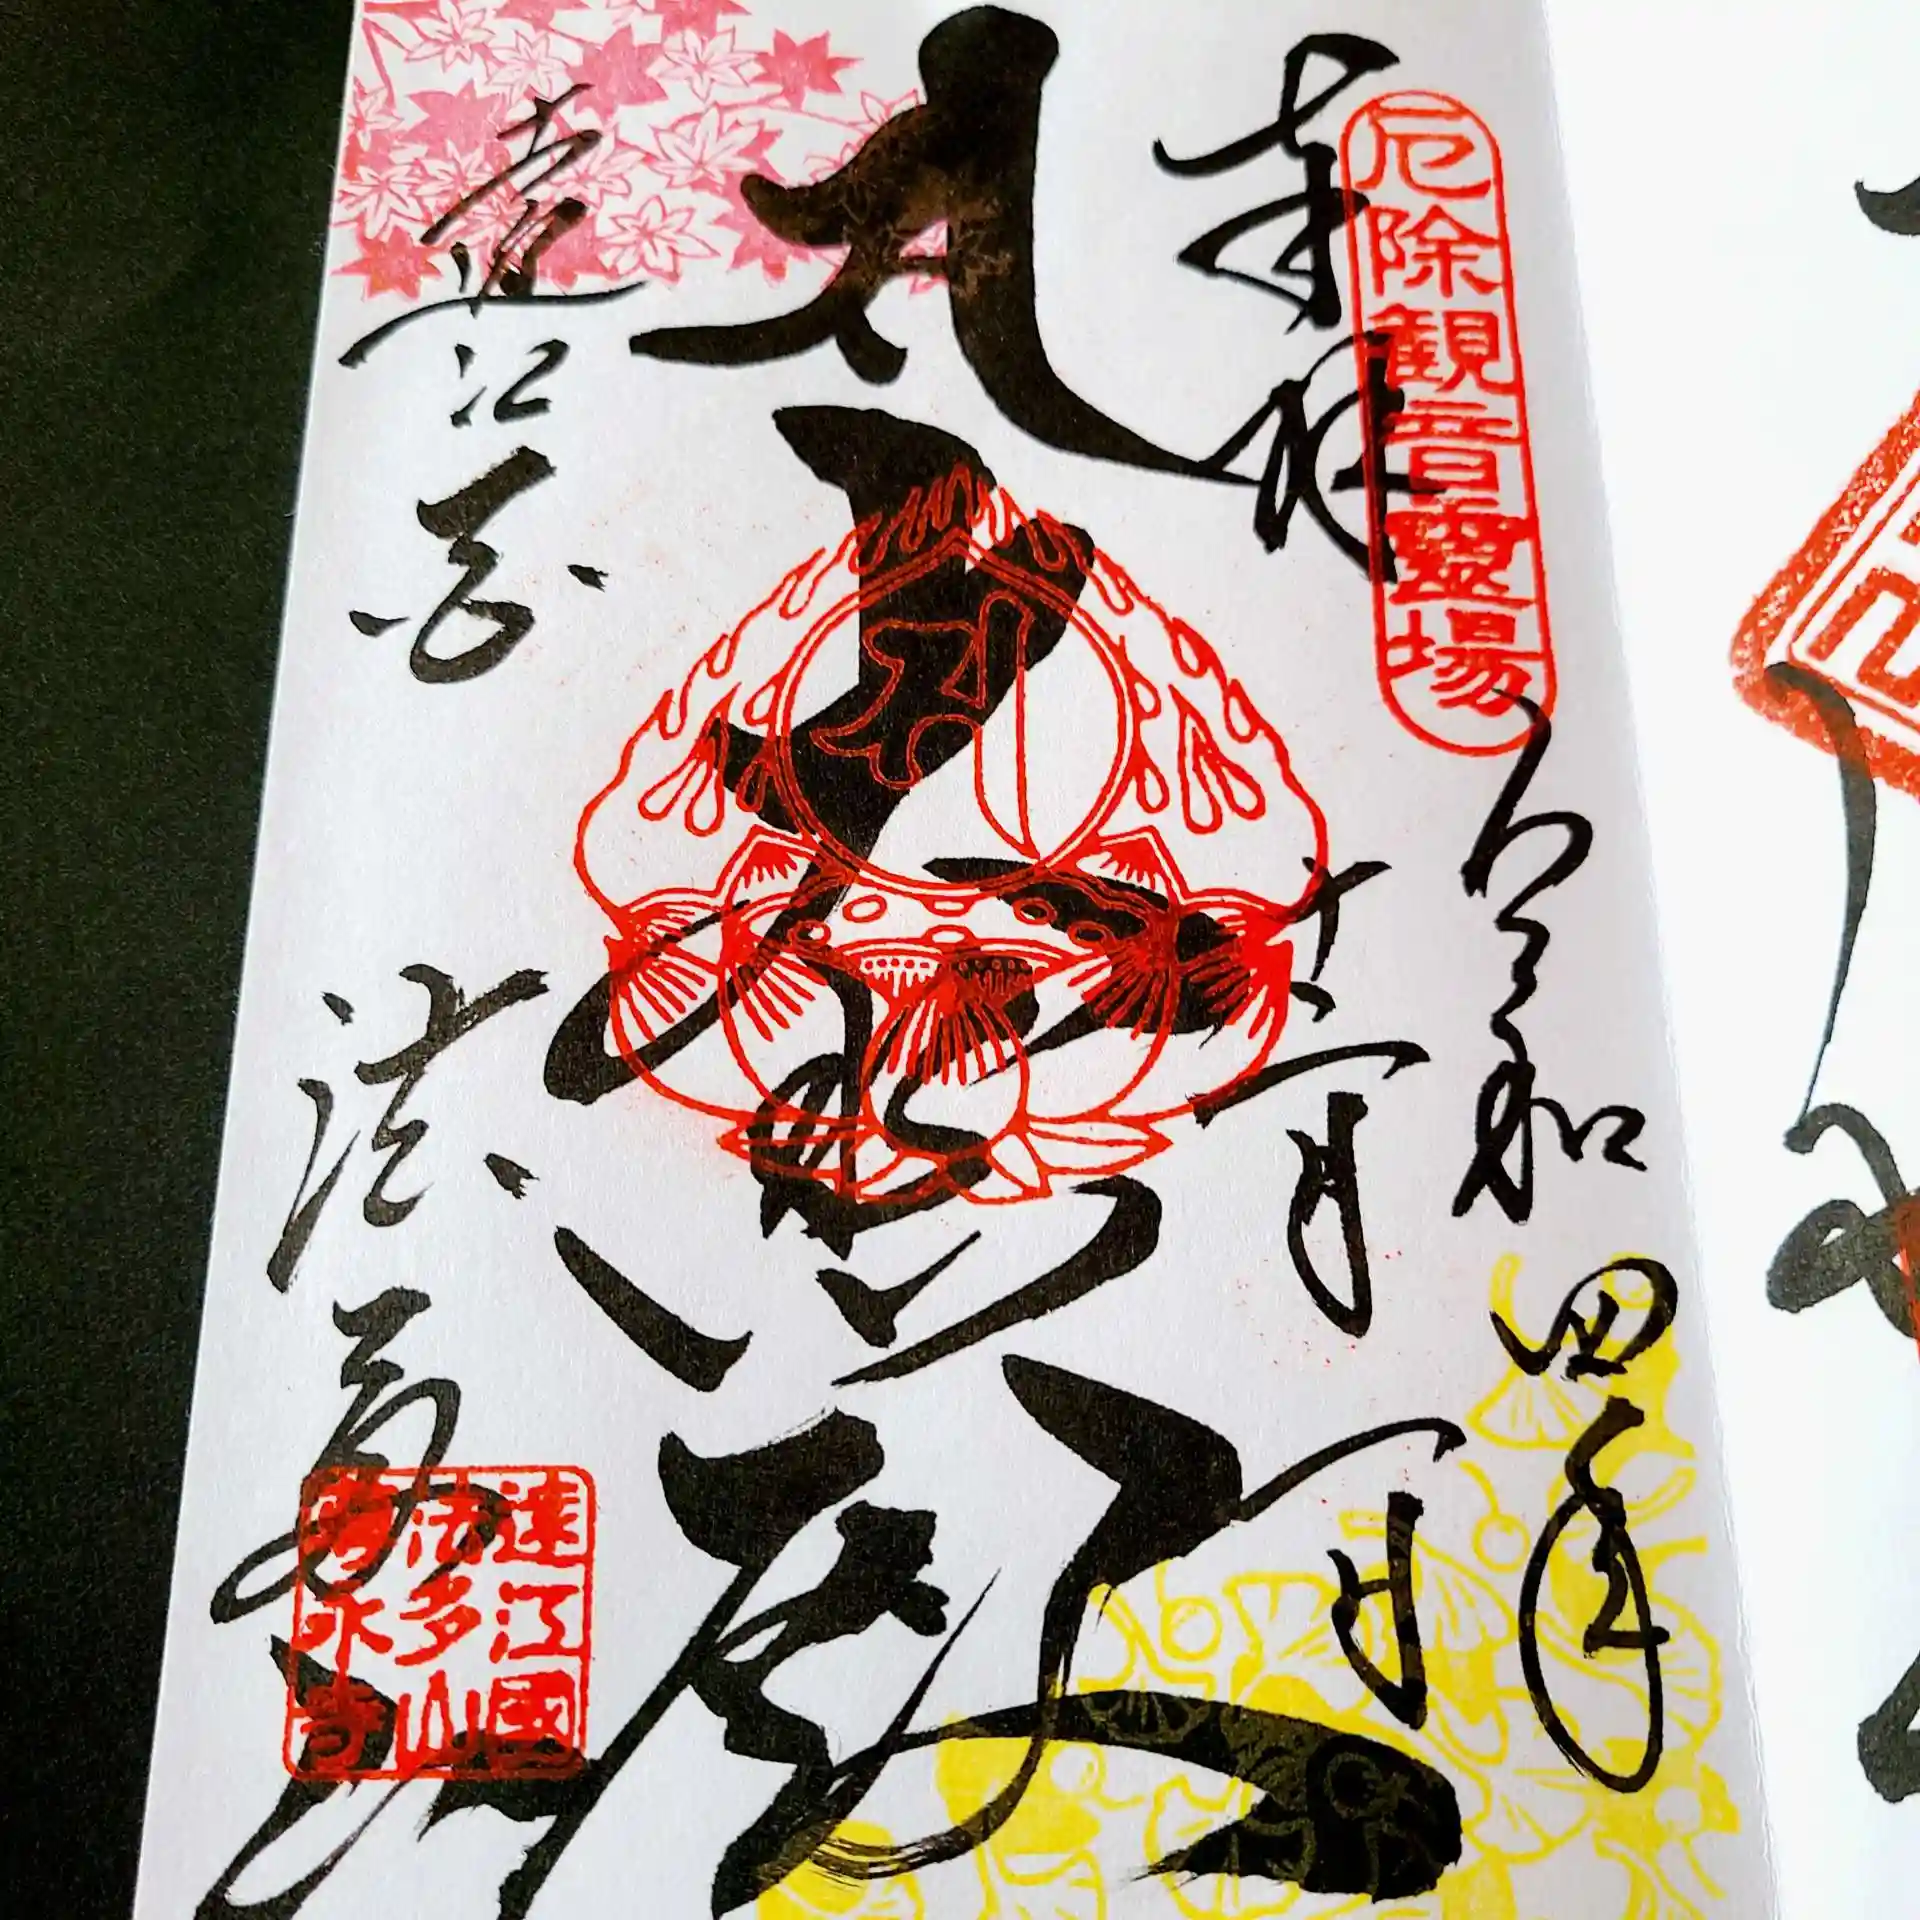 厄除観音霊場
奉拝
令和四年
十一月一日
大悲殿
遠江國
法多山
尊永寺
遠江国
法多山